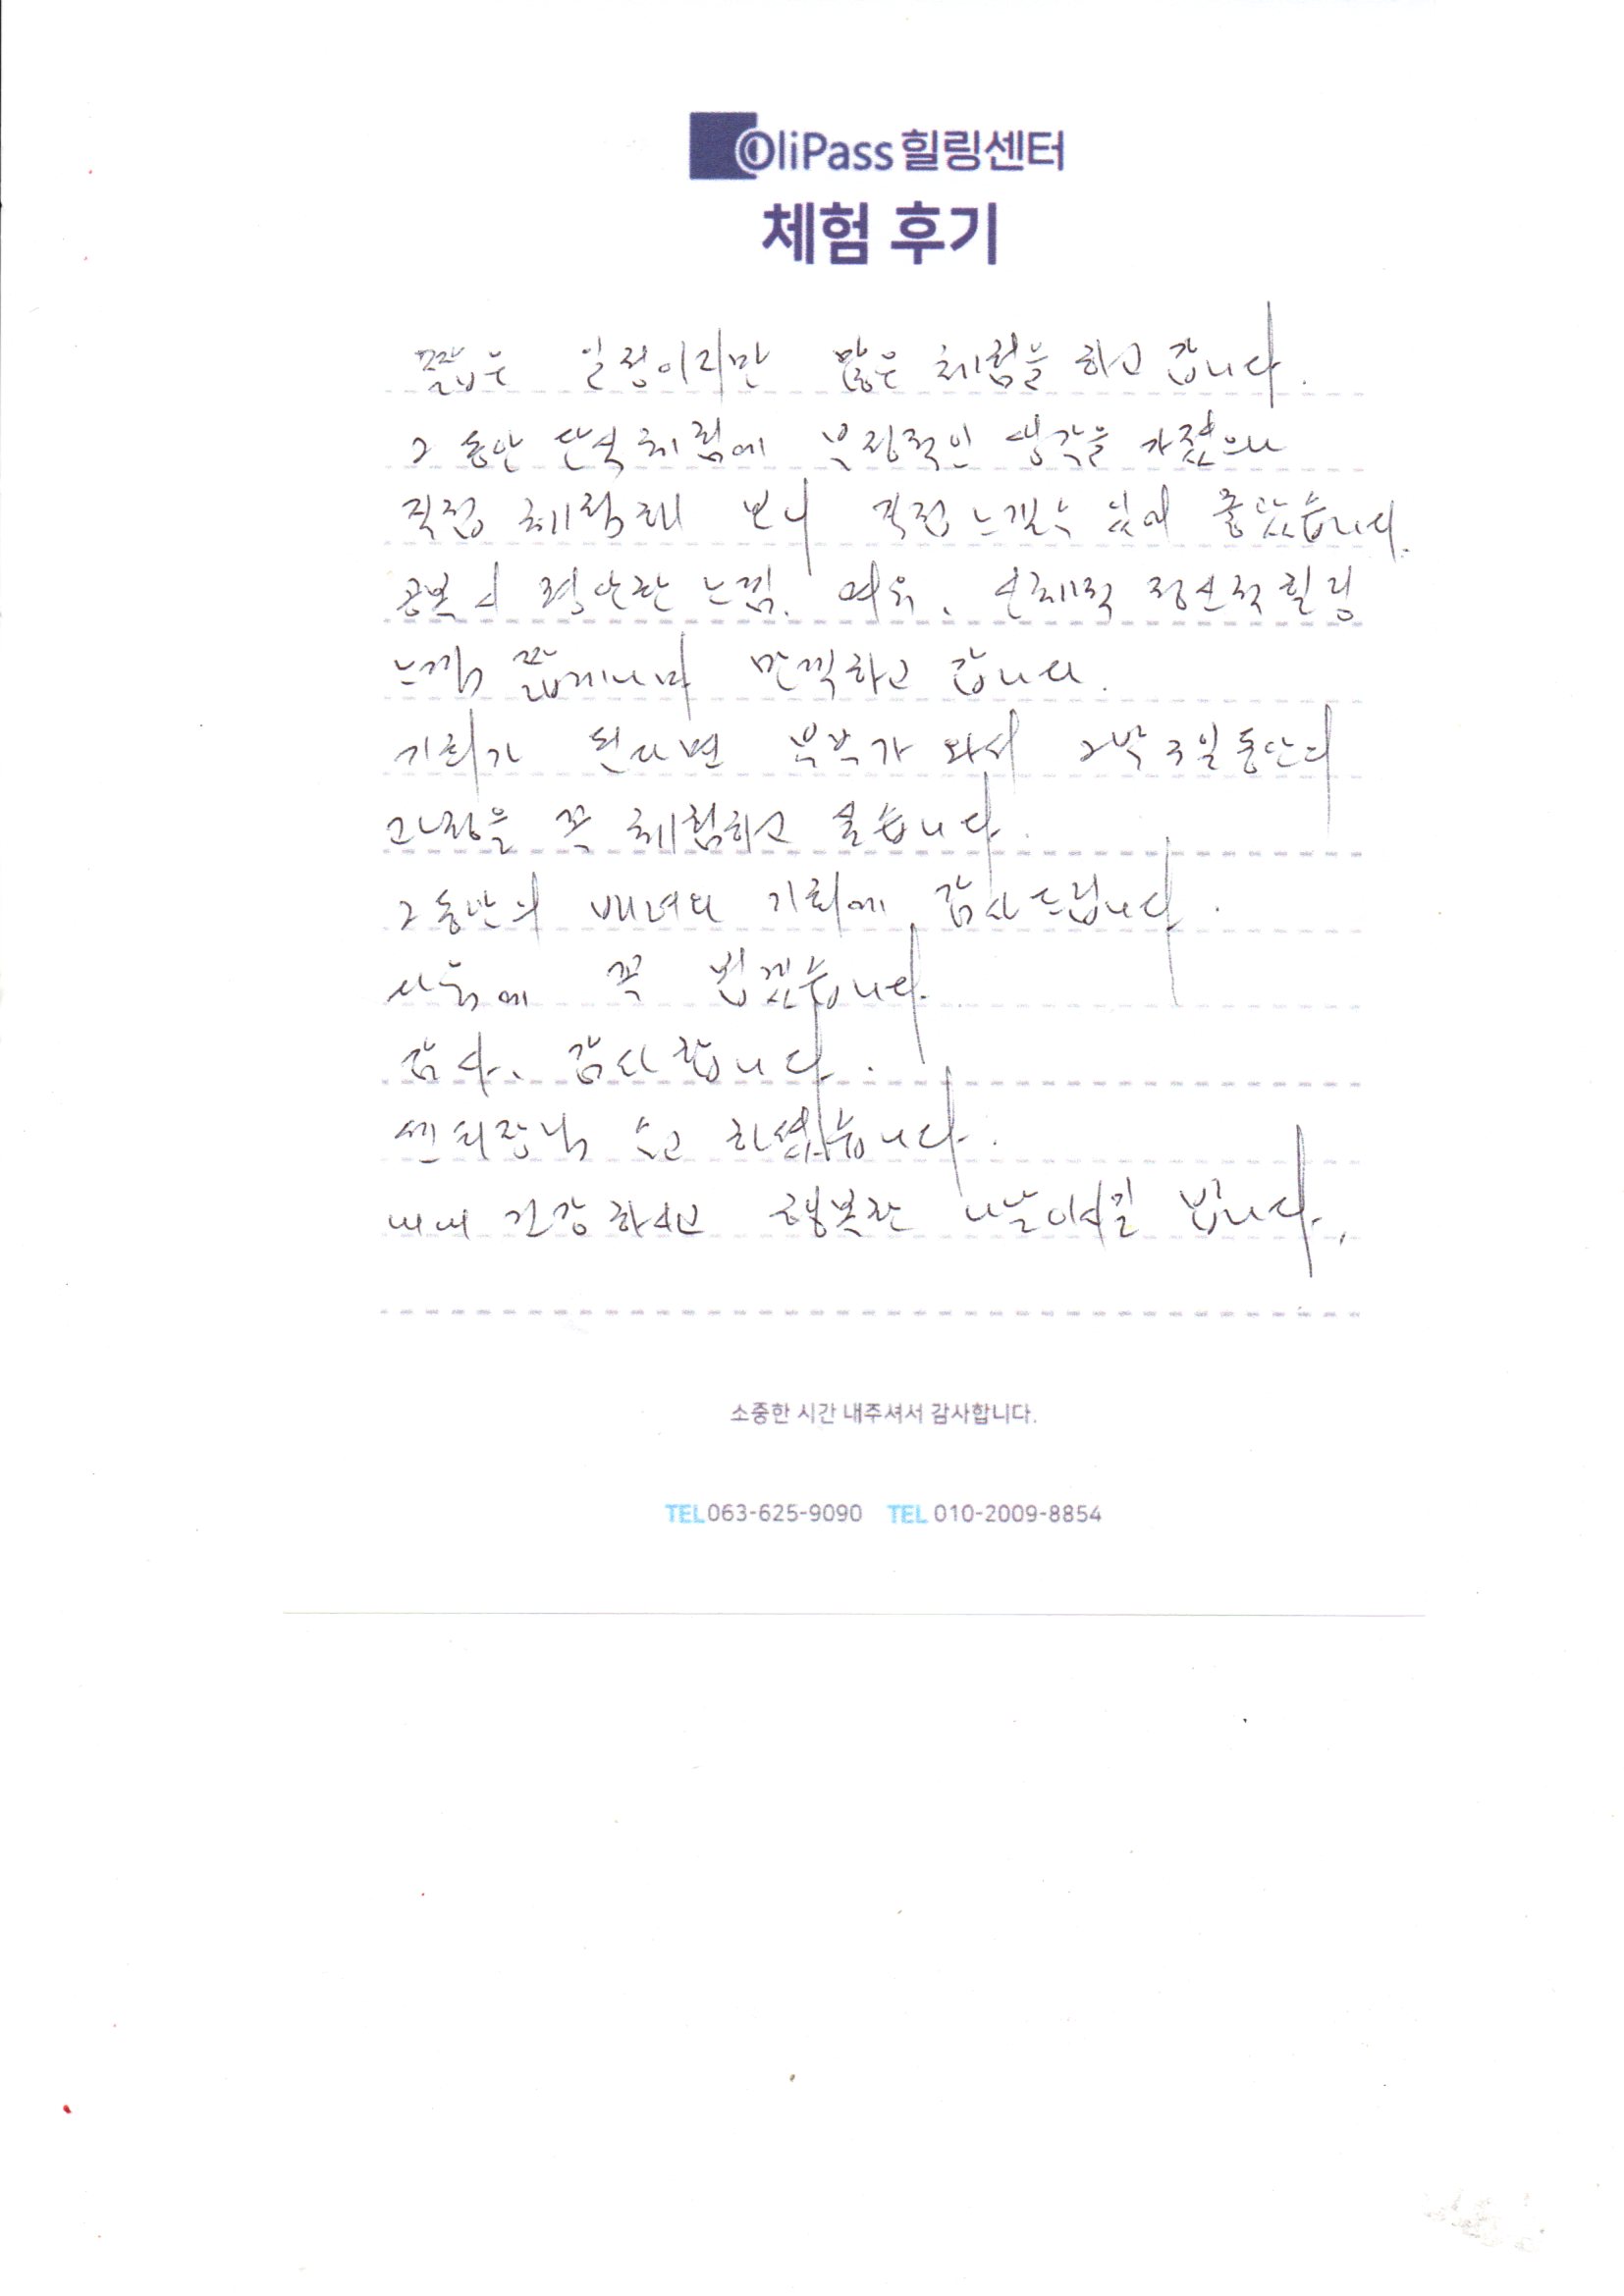 OliPass 힐링센터
체험 후기
짧은 일정이지만 많은 체험을 하고 갑니다.
그동안 단식체험에 부정적인 생각을 가졌으나
직접 체험해 보니 직접 느낄수 있어 좋았습니다.
공복시 편안한 느낌. 여유, 신체적 정신적 힐링
느낌 짧게나마 만끽하고 갑니다.
기회가 된다면 부부가 와서 2박 3일동안의
과정을 꼭 체험하고 싶습니다.
그동안의 배려와 기회에 감사드립니다.
사후에 꼭 뵙겠습니다.
감사, 감사합니다.
센터장님 수고 하셨습니다.
내내 건강하시고 행복한 나날이시길 빕니다.
소중한 시간 내주셔서 감사합니다.
TEL 063-625-9090 TEL 010-2009-8854